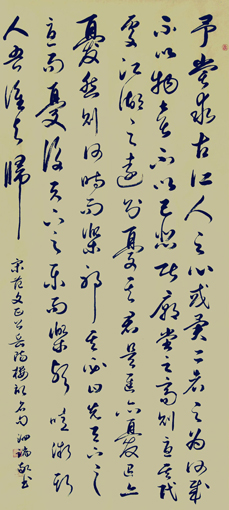 予嘗求古仁人之心或異二者之為何哉
不以物喜不以己悲居廟堂之高則憂其民
處江湖之遠則憂其君是進亦憂退亦
憂然則何時而樂耶其必曰先天下之
憂而憂後天下之樂而樂歟噫微斯
人吾誰與歸
宋范文正公岳陽樓記名句
書